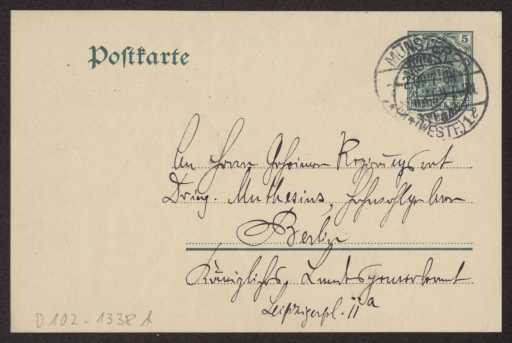 Postkarte
5
MÜNSTER
(WESTF.) 1
An Herrn Geheimen Regierungsrat
Dr. ing. Muthesius, Hochwohlgeboren
Berlin
Königliches Landesgewerbeamt
Leipzigerpl. 11a
D 102 - 1338 A